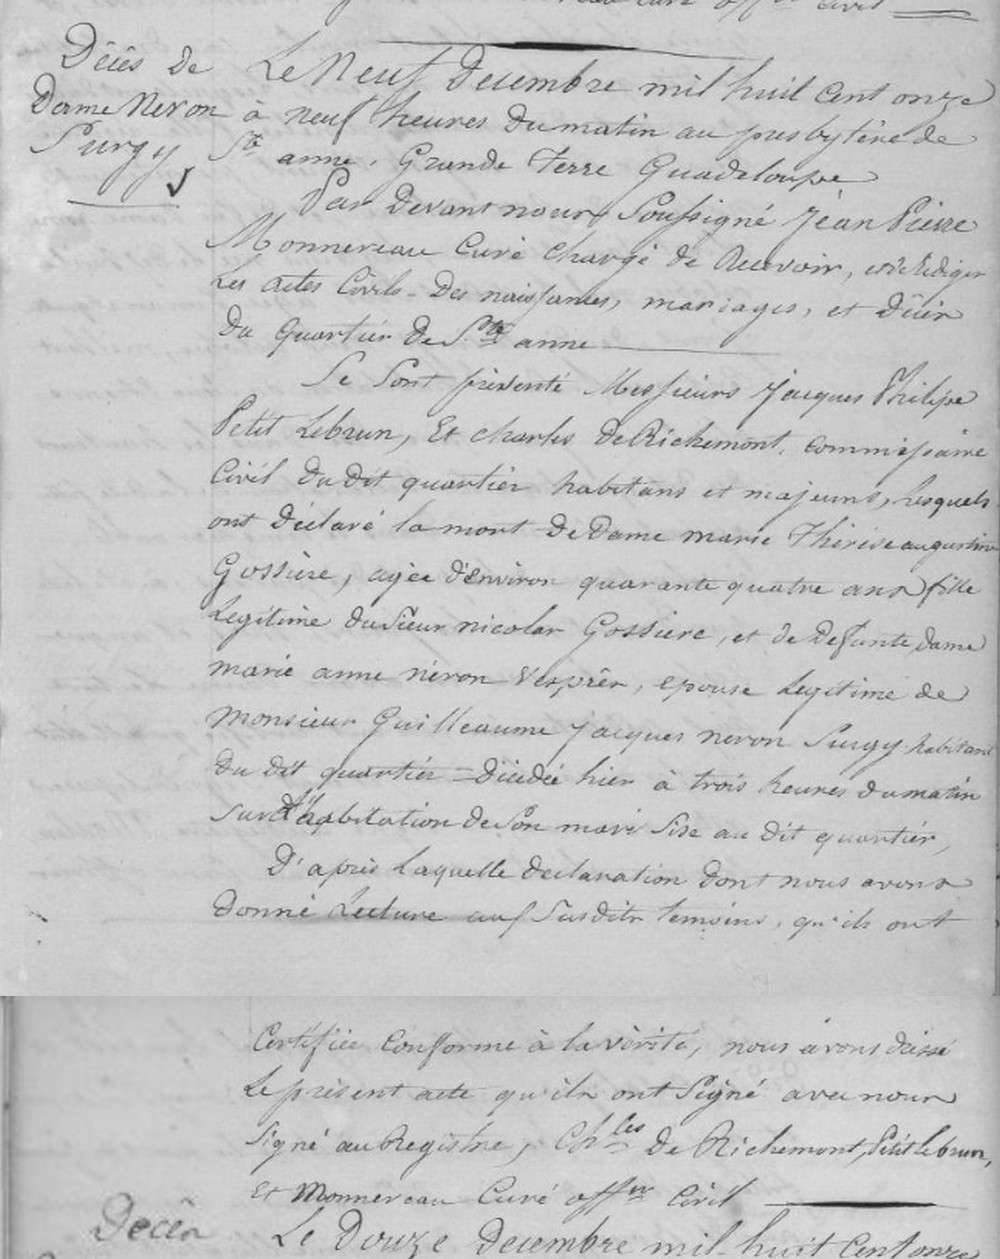 Décès de
Dame Neron
Surgy
Le Neuf Decembre mil huit cent onze
à neuf heures du matin au presbytère de
Ste anne, Grande Terre Guadeloupe
Par devant nous Soussigné Jean Pierre
Monnereau Curé chargé de Recevoir, et Rédiger
Les actes Civils Des naissances, mariages, et décès
Du Quartier de Ste anne
Se Sont présenté Messieurs Jacques Philipe
Petit Lebrun, Et charles de Richemont, commissaire
Civil du dit quartier habitans et majeurs, Lesquels
ont déclaré la mort de Dame marie Thérèse augustine
Gossiere, agée d'environ quarante quatre ans, fille
Legitime du Sieur nicolas Gossiere, et de defunte, dame
marie anne néron Vesprès, epouse Legitime de
Monsieur Guilleaume Jacques neron Surgy habitant
du dit quartier décédée hier à trois heures du matin
Sur l'habitation de Son mari Sise au dit quartier,
D'après Laquelle declaration dont nous avons
donné Lecture aux Susdits temoins, qu'ils ont
Certifiée Conforme à la vérité, nous avons dressé
Le présent acte qu'ils ont Signé avec nous
Signé au Registre, Chles de Richemont, Petit Lebrun,
Et Monnereau Curé offer Civil
Décès
Le Douze Decembre mil huit Cent onze